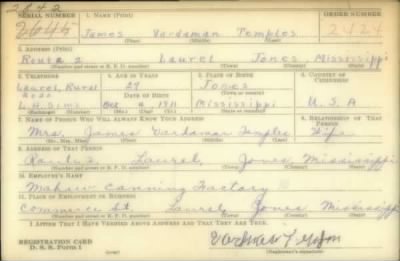 2642
SERIAL NUMBER 1. NAME (Print) ORDER NUMBER
2645 James Vardaman Temples 2424
(First) (Middle) (Last)
2. ADDRESS (Print)
Route 2 Laurel Jones Mississippi
(Number and street or R. F. D. number) (Town) (County) (State)
3. TELEPHONE 4. AGE IN YEARS 5. PLACE OF BIRTH 6. COUNTRY OF CITIZENSHIP
Laurel, Rural 29 Jones
DATE OF BIRTH
L.H. Sims Oct 1911 Mississippi U.S.A
(Exchange) (Number) (Mo.) (Day) (Yr.) (State or country)
7. NAME OF PERSON WHO WILL ALWAYS KNOW YOUR ADDRESS 8. RELATIONSHIP OF THAT PERSON
Mrs. James Vardaman Temples Wife
(Mr., Mrs., Miss) (First) (Middle) (Last)
9. ADDRESS OF THAT PERSON
Route 2, Laurel, Jones, Mississippi
(Number and street or R. F. D. number) (Town) (County) (State)
10. EMPLOYER'S NAME
Canning Factory
11. PLACE OF EMPLOYMENT OR BUSINESS
Commerce St, Laurel, Jones Mississippi
(Number and street or R. F. D. number) (Town) (County) (State)
I AFFIRM THAT I HAVE VERIFIED ABOVE ANSWERS AND THAT THEY ARE TRUE.
REGISTRATION CARD
D. S. S. Form 1
(Registrant's signature)